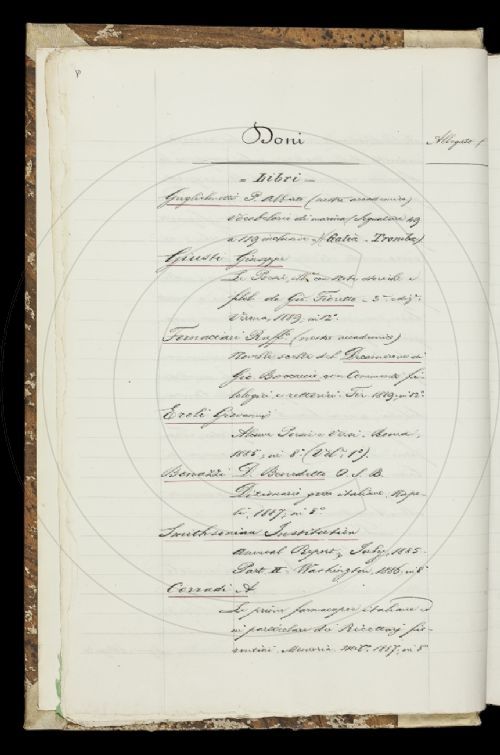 Doni
Allegato
= Libri =
Guglielmotti P. Alberto (nostro accademico)
Vocabolario di marina, Segnature 49
a 119 inclusive (Galèa - Tromba)
Giusti Giuseppe
Le Poesie, con note storiche e
filol. da Gio. Fioretto - 3ª ediz:
Verona, 1889, in 12º.
Fornaciari Raff. (nostro accademico)
Novelle scelte dal Decamerone di
Gio. Boccaccio con Commento fi-
lologico e rettorico. Fir. 1889, in 12º
Eroli Giovanni
Alcune Prose e Versi - Roma,
1885, in 8º. (Vol. 1º).
Benazzi D. Benedetto O. S. B.
Dizionario italiano, Napo-
li, 1887, in 8º
Smithsonian Institution
Annual Report, July, 1885.
Part II. Washington, 1886. in 8º
Corradi A
Le prime farmacopee italiane ed
in particolare dei Ricettarj fio-
rentini. Memoria. 1887, in 8º